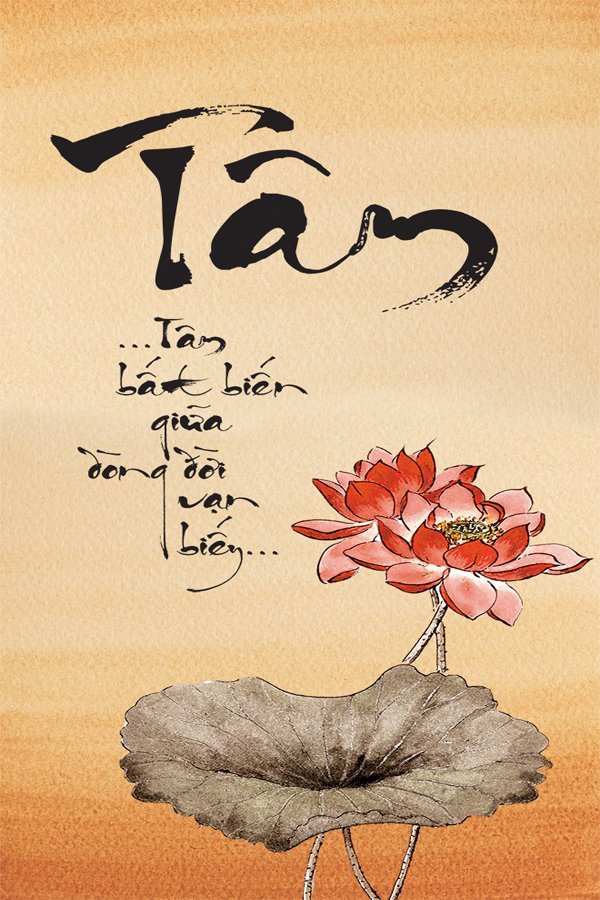 Tâm
...Tâm
bất biến
giữa
dòng đời
vạn
biến...